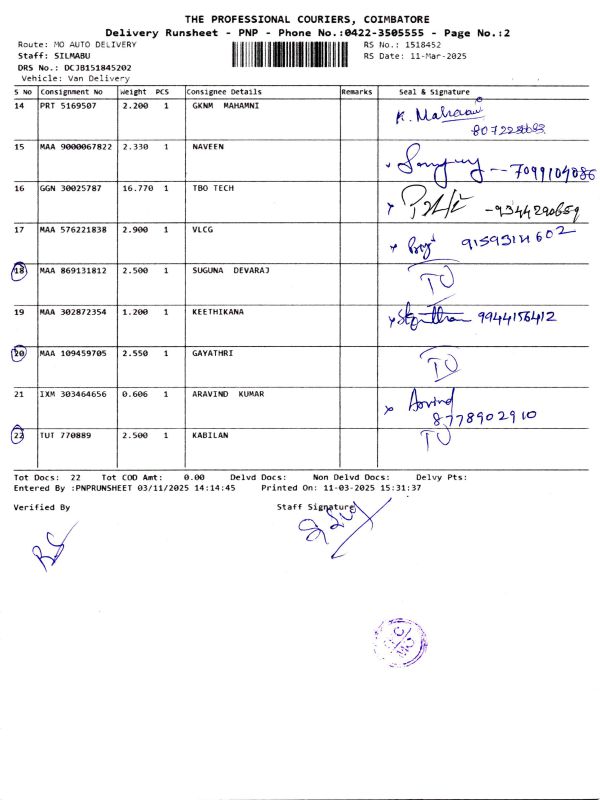 THE PROFESSIONAL COURIERS, COIMBATORE
Delivery Runsheet - PNP - Phone No.:0422-3505555 - Page No.:2
Route: MO AUTO DELIVERY RS No.: 1518452
Staff: SILMABU RS Date: 11-Mar-2025
DRS No.: DCJB151845202
Vehicle: Van Delivery
S No Consignment No Weight PCS Consignee Details Remarks Seal & Signature
14 PRT 5169507 2.200 1 GKNM MAHAMNI K.
15 MAA 9000067822 2.330 1 NAVEEN 7099104086
16 GGN 30025787 16.770 1 TBO TECH -9344290659
17 MAA 576221838 2.900 1 VLCG
18 MAA 869131812 2.500 1 SUGUNA DEVARAJ TO
19 MAA 302872354 1.200 1 KEETHIKANA 9944156412
20 MAA 109459705 2.550 1 GAYATHRI TO
21 IXM 303464656 0.606 1 ARAVIND KUMAR Arvind
8778902910
22 TUT 770889 2.500 1 KABILAN TO
Tot Docs: 22 Tot COD Amt: 0.00 Delvd Docs: Non Delvd Docs: Delvy Pts:
Entered By :PNPRUNSHEET 03/11/2025 14:14:45 Printed On: 11-03-2025 15:31:37
Verified By Staff Signature